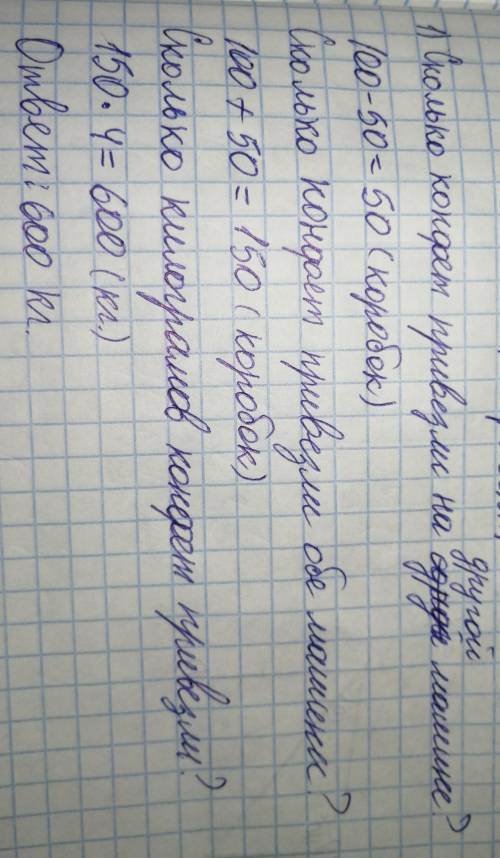 1) Сколько конфет привезли на другой машине?
100-50=50 (коробок)
Сколько конфет привезли обе машины?
100+50=150 (коробок)
Сколько килограмов конфет привезли?
150·4=600 (кг.)
Ответ: 600 кг.